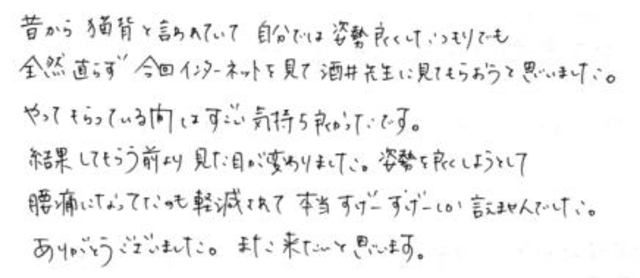 昔から 猫背と言われていて 自分では姿勢良くしたつもりでも
全然直らず 今回インターネットを見て 酒井先生に見てもらおうと思いました。
やってもらっている間はすごい気持ち良かったです。
結果してもらう前より見た目が変わりました。姿勢を良くしようとして
腰痛になってたのも軽減されて 本当すげーすげーしか言えませんでした。
ありがとうございました。また来たいと思います。